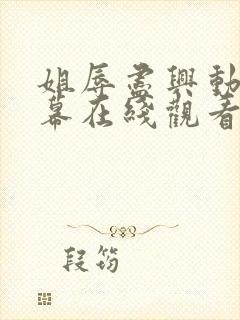 姐辱盡興動
幕在綫觀看
段筠